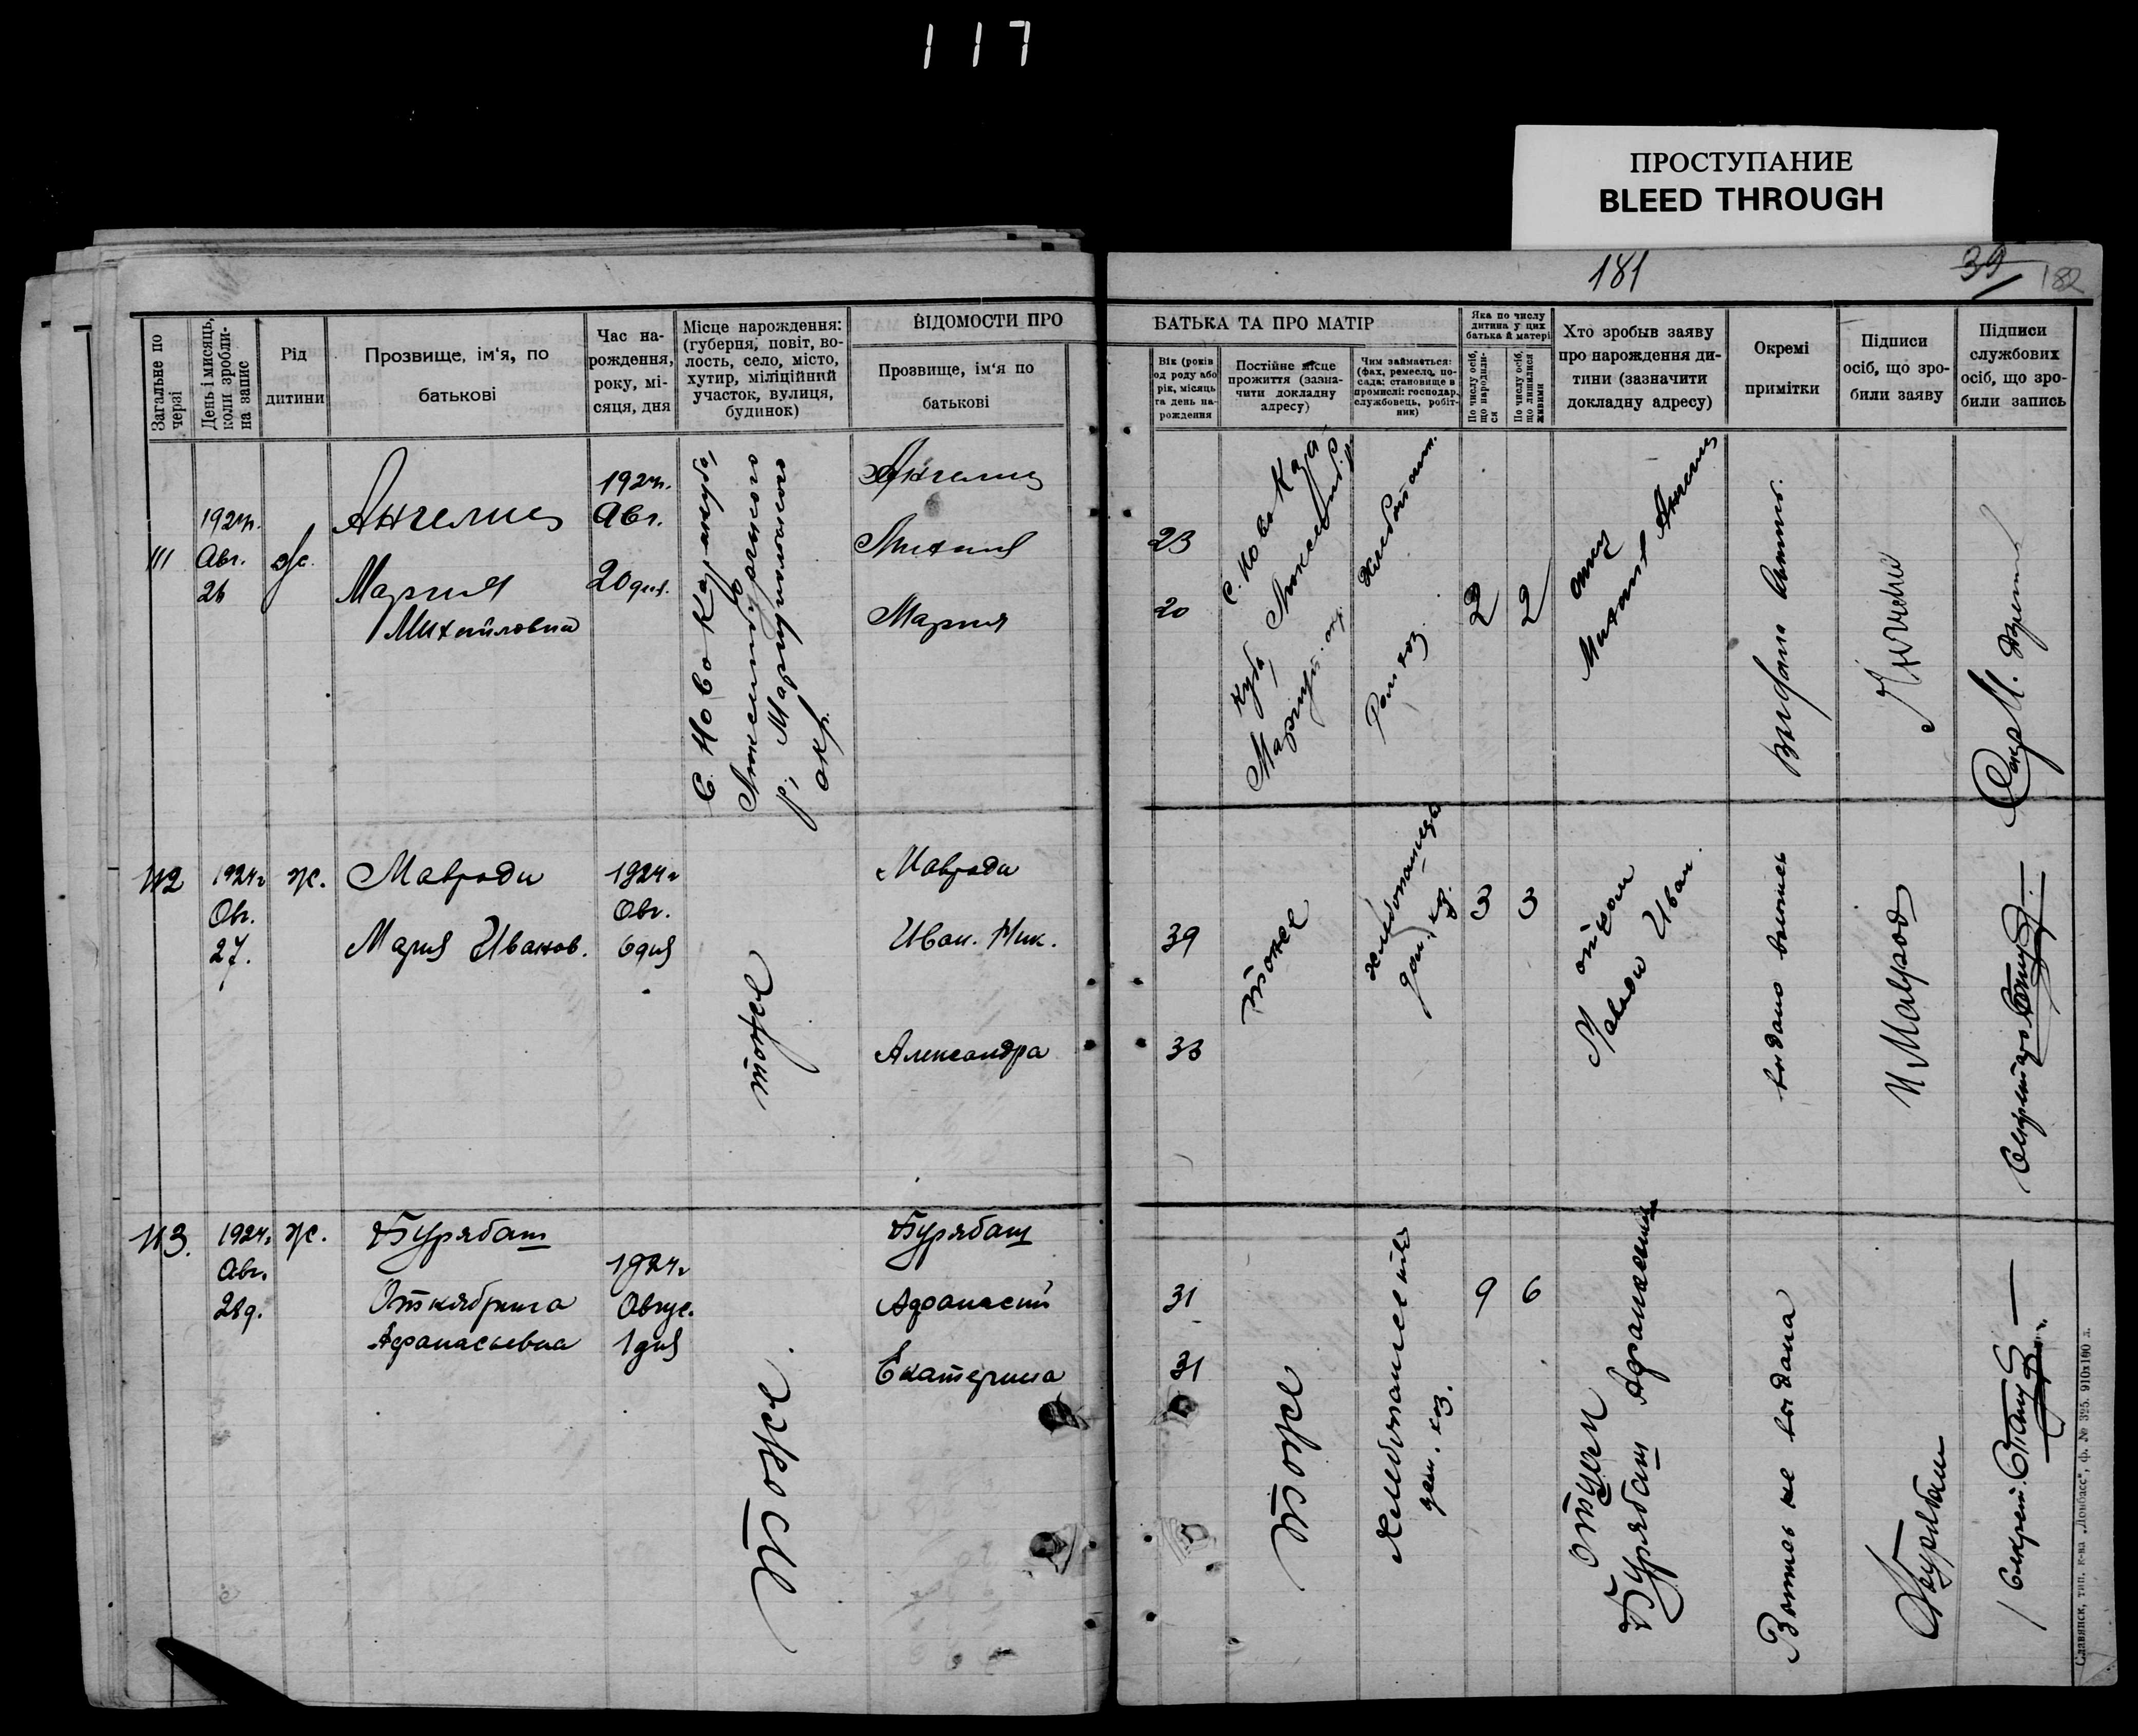 117
ПРОСТУПАНИЕ
BLEED THROUGH
181
39
182
Загальне по черзі
День і мисяць, коли зробли- на запис
Рід дитини
Прозвище, ім'я, по батькові
Час на- рождення, року, мі- сяця, дня
Місце нарождення: (губерня, повіт, во- лость, село, місто, хутир, міліційний участок, вулиця, будинок)
ВІДОМОСТИ ПРО
Прозвище, ім'я по батькові
БАТЬКА ТА ПРО МАТІР
Вік (років од роду або рік, місяць та день на- рождення
Постійне місце прожиття (зазна- чити докладну адресу)
Чим займається: (фах, ремесло, по- сада: становище в промислі: господар, службовець, робіт- ник)
Яка по числу дитина у цих батька й матері
По числу осіб, що народили- ся
По числу осіб, що лишилися живими
Хто зробыв заяву про нарождення ди- тини (зазначити докладну адресу)
Окремі примітки
Підписи осіб, що зро- били заяву
Підписи службових осіб, що зро- били запись
111
1924г.
Авг.
26
ж.
Ангелиц
Мария
Михайловна
1924г.
Авг.
20 дня.
С. Ново Каракуба,
р., Мариупольского
окр.
Ангелиц
Михаил
Мария
23
20
С. Ново Кара-
куба
Мариуп. окр.
2
2
отец
Михаил Ангелиц
112
1924г
Авг.
27.
ж.
Мавроди
Мария Иванов.
1924г
Авг.
6 дня
тоже
Мавроди
Иван. Ник.
Александра
39
33
тоже
дом. хоз.
3
3
отцом
Мавроди Иван.
выдано выпись
И Мавроди
113.
1924г
Авг.
28 д.
ж.
Бурябаш
Откябрина
Афанасьевна
1924г
Авгус.
1 дня
Тоже
Бурябаш
Афанасий
Екатерина
31
31
Тоже
дом. хоз.
9
6
Отцем
Бурябаш Афанасием
Выпись не выдана
Бурябаш
Славянск, тип. к-ва „Донбасс", ф. № 325. 910х100 л.